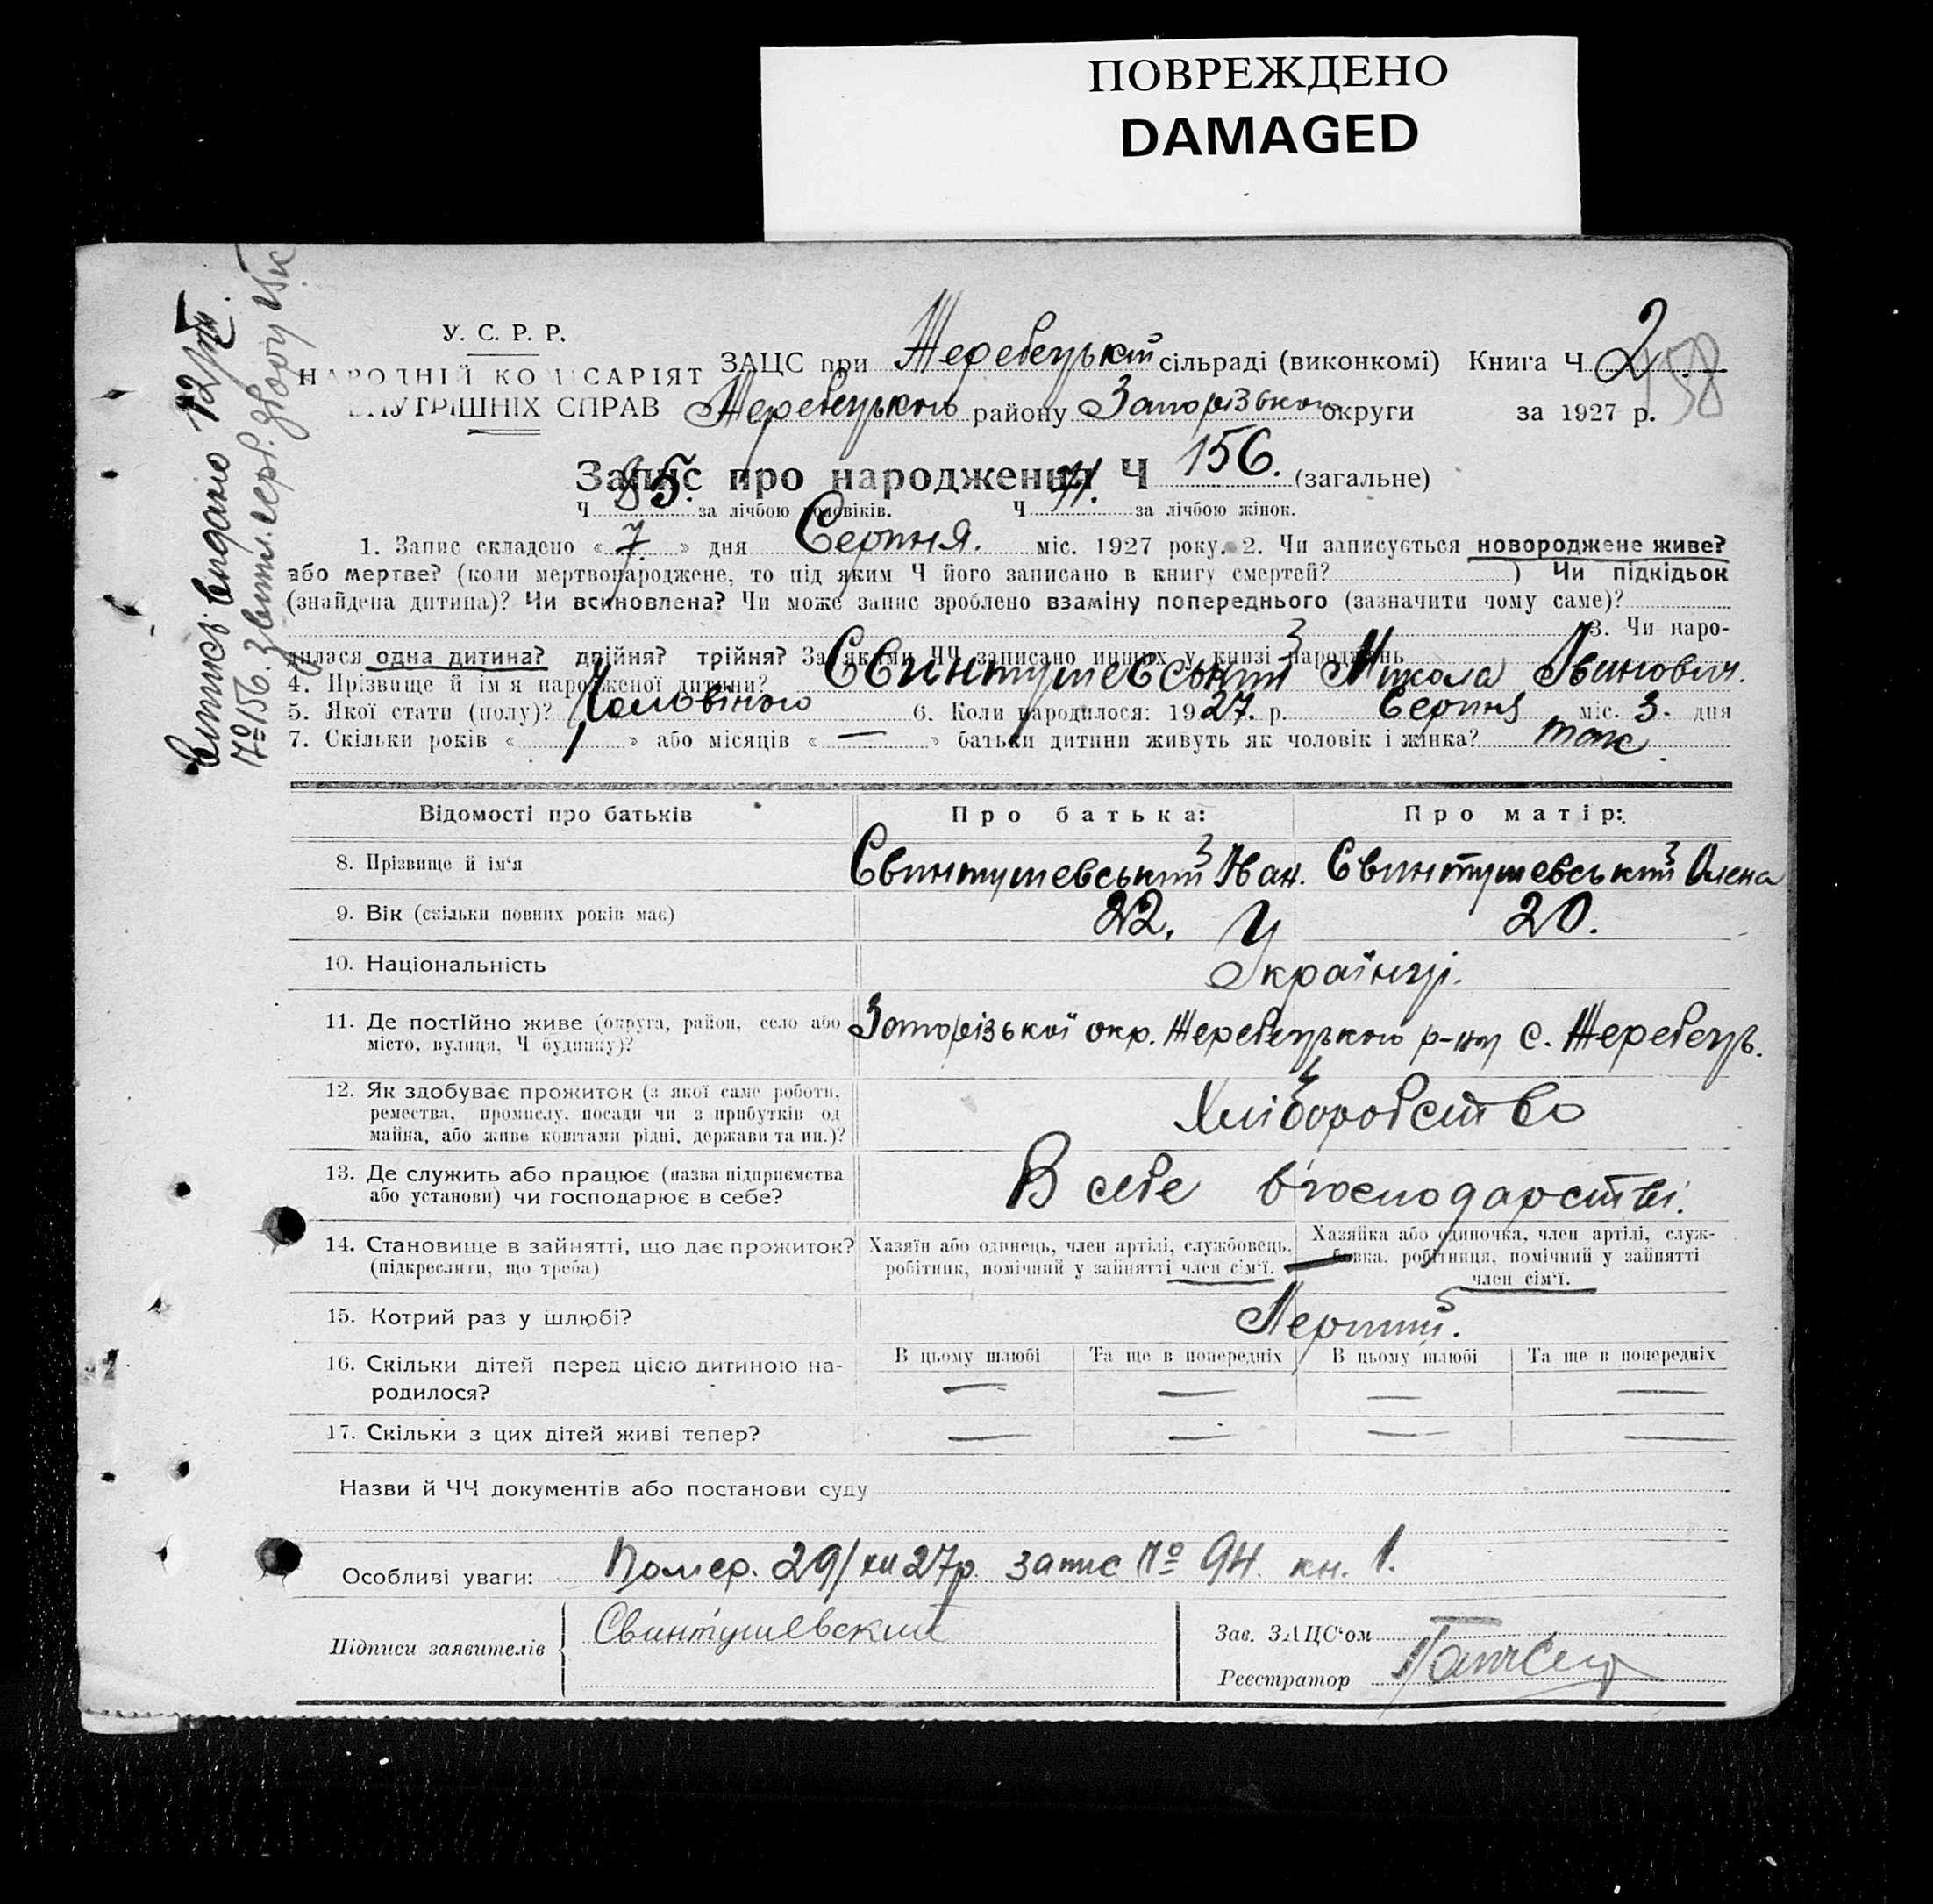 ПОВРЕЖДЕНО
DAMAGED
У. С. Р. Р.
НАРОДНІЙ КОМІСАРІЯТ
ВНУТРІШНІХ СПРАВ
ЗАЦС при Жеребецькій сільраді (виконкомі) Книга Ч 2
158
Жеребецького району Запорізької округи за 1927 р.
Запис про народження Ч 156. (загальне)
Ч 85. за лічбою чоловіків. Ч 71. за лічбою жінок.
1. Запис складено « 7 » дня Серпня. міс. 1927 року. 2. Чи записується новороджене живе?
або мертве? (коли мертвонароджене, то під яким Ч його записано в книгу смертей? ) Чи підкідьок
(знайдена дитина)? Чи всиновлена? Чи може запис зроблено взаміну попереднього (зазначити чому саме)?
3. Чи наро-
дилася одна дитина? двійня? трійня? За якими ЧЧ записано инших у книзі народжень
4. Прізвище й ім'я народженої дитини? Свинтушевський Микола Іванович.
5. Якої стати (полу)? Чоловічого 6. Коли народилося: 1927. р. Серпня міс. 3. дня
7. Скільки років « 1 » або місяців « — » батьки дитини живуть як чоловік і жінка? так.
Відомості про батьків Про батька: Про матір:
8. Прізвище й ім'я Свинтушевський Іван. Свинтушевський Олена
9. Вік (скільки повних років має) 22. 20.
10. Національність Українці.
11. Де постійно живе (округа, район, село або місто, вулиця, Ч будинку)? Запорізької окр. Жеребецького р-ну с. Жеребець.
12. Як здобуває прожиток (з якої саме роботи,
ремества, промислу, посади чи з прибутків од
майна, або живе коштами рідні, держави та ин.)? Хліборобство
13. Де служить або працює (назва підприємства
або установи) чи господарює в себе? В себе в господарстві.
14. Становище в зайнятті, що дає прожиток?
(підкреслити, що треба)
Хазяїн або одинець, член артілі, службовець,
робітник, помічний у зайнятті член сім'ї.
Хазяйка або одиночка, член артілі, служ-
бовка, робітниця, помічний у зайнятті
член сім'ї.
15. Котрий раз у шлюбі? Перший.
16. Скільки дітей перед цією дитиною на-
родилося?
В цьому шлюбі Та ще в попередніх В цьому шлюбі Та ще в попередніх
— — — —
17. Скільки з цих дітей живі тепер? — — — —
Назви й ЧЧ документів або постанови суду
Особливі уваги: Помер. 29/XII 27р. запис № 94. кн. 1.
Підписи заявителів Свинтушевский
Зав. ЗАЦС'ом
Реєстратор
Випис видано 12/
№ 156.